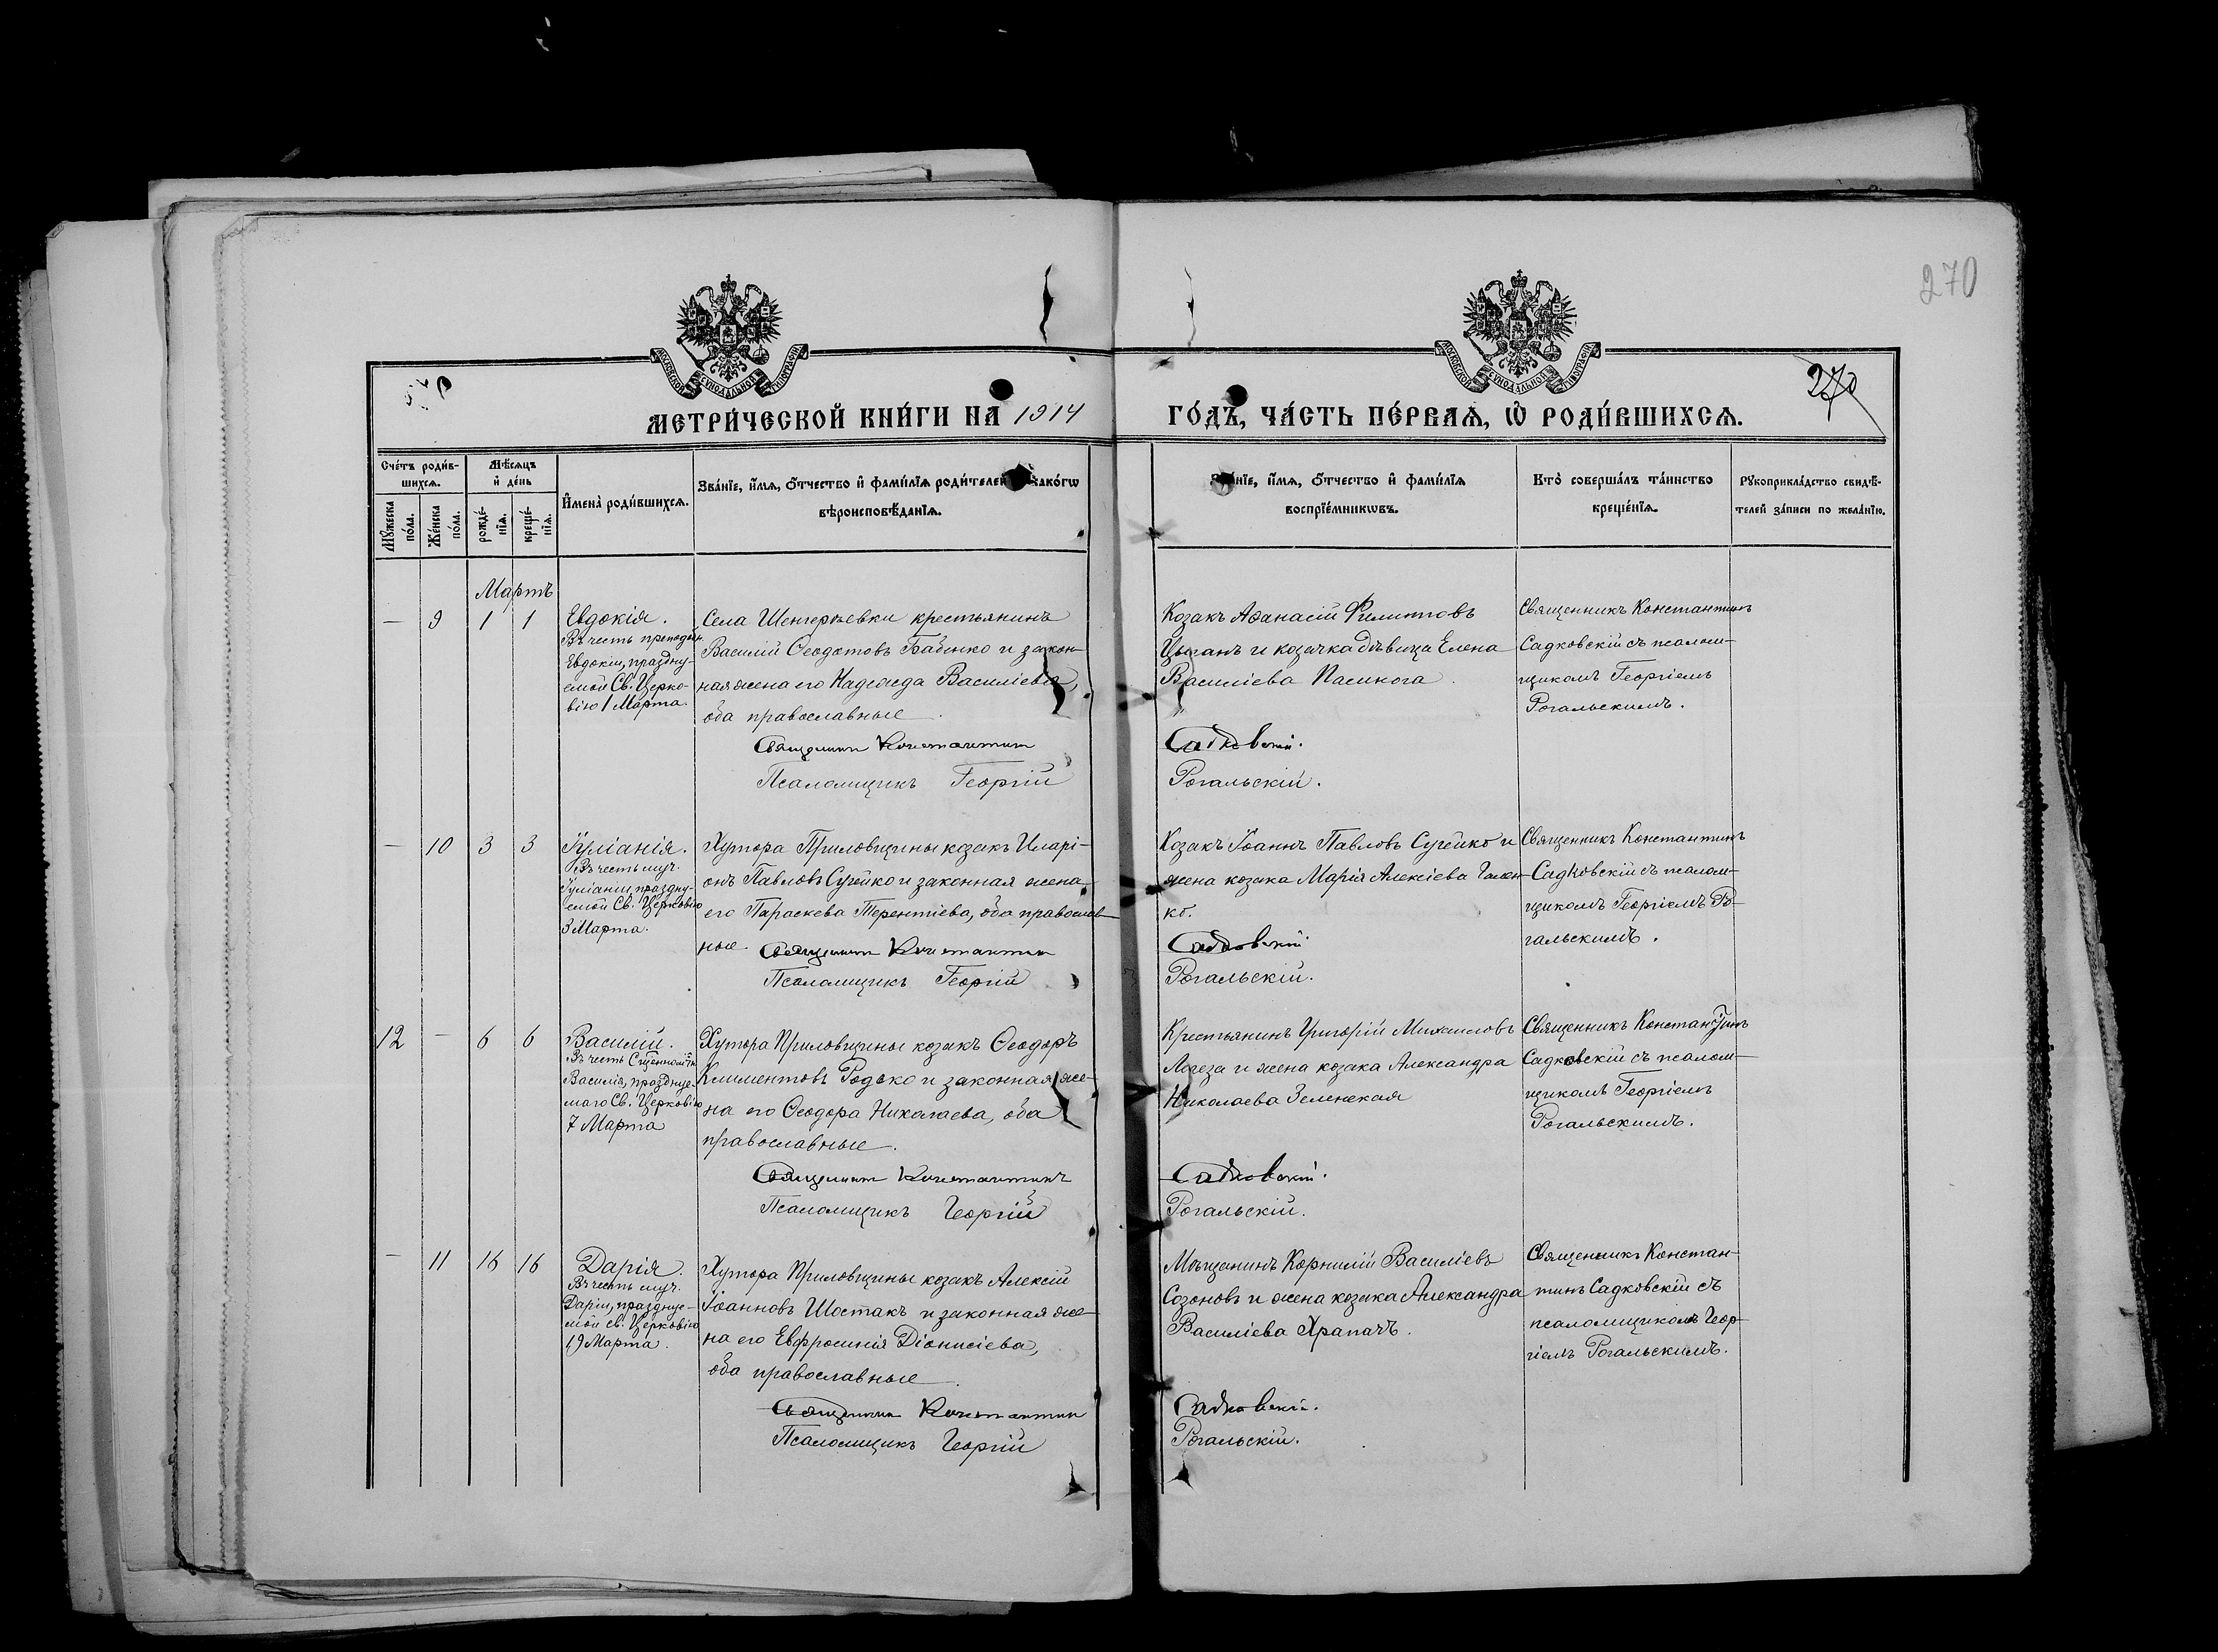 270
МОСКОВСКОЙ СУНОДАЛЬНОЙ ТИПОГРАФІИ
МОСКОВСКОЙ СУНОДАЛЬНОЙ ТИПОГРАФІИ
270
МЕТРИ́ЧЕСКОЙ КНИ́ГИ НА 1914
ГО́ДЪ, ЧА́СТЬ ПЕ́РВАѦ, Ѡ РОДИ́ВШИХСѦ.
Сче́тъ роди́в-
шихсѧ.
Мѣ́сѧцъ
и҆ де́нь
Мꙋ́жеска
по́ла.
Же́нска
по́ла.
рожде́-
нїѧ.
креще́-
нїѧ.
И҆мена̀ роди́вшихсѧ.
Зва́нїе, и҆́мѧ, ѻ҆́тчество и҆ фами́лїѧ роди́телей како́гѡ
вѣроисповѣ́данїѧ.
Зва́нїе, и҆́мѧ, ѻ҆́тчество и҆ фами́лїѧ
воспрїе́мникѡвъ.
Кто̀ соверша́лъ та́инство
креще́нїѧ.
Рꙋкоприкла́дство свидѣ́-
телей за́писи по жела́нїю.
Мартъ
— 9 1 1
Евдокія.
Въ честь преподобн.
Евдокіи, праздну-
емой Св. Церко-
вію 1 Марта.
Села крестьянинъ
Василій Ѳеодотовъ Бабенко и закон-
ная жена его Надежда Василіева,
оба православные.
Священникъ Константинъ
Псаломщикъ Георгій
Козакъ Аѳанасій Филипповъ
Цыганъ и козачка дѣвица Елена
Василіева
Садковскій.
Рогальскій.
Священникъ Константинъ
Садковскій съ псалом-
щикомъ Георгіемъ
Рогальскимъ.
— 10 3 3
Іуліанія.
Въ честь муч.
Іуліаніи, праздну-
емой Св. Церковію
3 Марта.
Хутора Приловщины козакъ Иларі-
онъ Павловъ Сугейко и законная жена
его Параскева Терентіева, оба православ-
ные.
Священникъ Константинъ
Псаломщикъ Георгій
Козакъ Іоаннъ Павловъ Сугейко и
жена козака Марія Алексіева
Садковскій.
Рогальскій.
Священникъ Константинъ
Садковскій съ псалом-
щикомъ Георгіемъ Ро-
гальскимъ.
12 — 6 6
Василій.
Въ честь
Василія, праздnuе-
маго Св. Церковію
7 Марта
Хутора Приловщины козакъ Ѳеодоръ
Климентовъ Родько и законная же-
на его Ѳеодора Николаева, оба
православные.
Священникъ Константинъ
Псаломщикъ Георгій
Крестьянинъ Григорій Михаиловъ
и жена козака Александра
Николаева Зеленская
Садковскій.
Рогальскій.
Священникъ Константинъ
Садковскій съ псалом-
щикомъ Георгіемъ
Рогальскимъ.
— 11 16 16
Дарія.
Въ честь муч.
Даріи, празднуе-
мой св. Церковію
19 Марта.
Хутора Приловщины козакъ Алексій
Іоанновъ Шостакъ и законная же-
на его Евфросинія Діонисіева,
оба православные.
Священникъ Константинъ
Псаломщикъ Георгій
Мѣщанинъ Корнилій Василіевъ
Созоновъ и жена козака Александра
Василіева Храпачъ.
Садковскій.
Рогальскій.
Священникъ Констан-
тинъ Садковскій съ
псаломщикомъ Геор-
гіемъ Рогальскимъ.